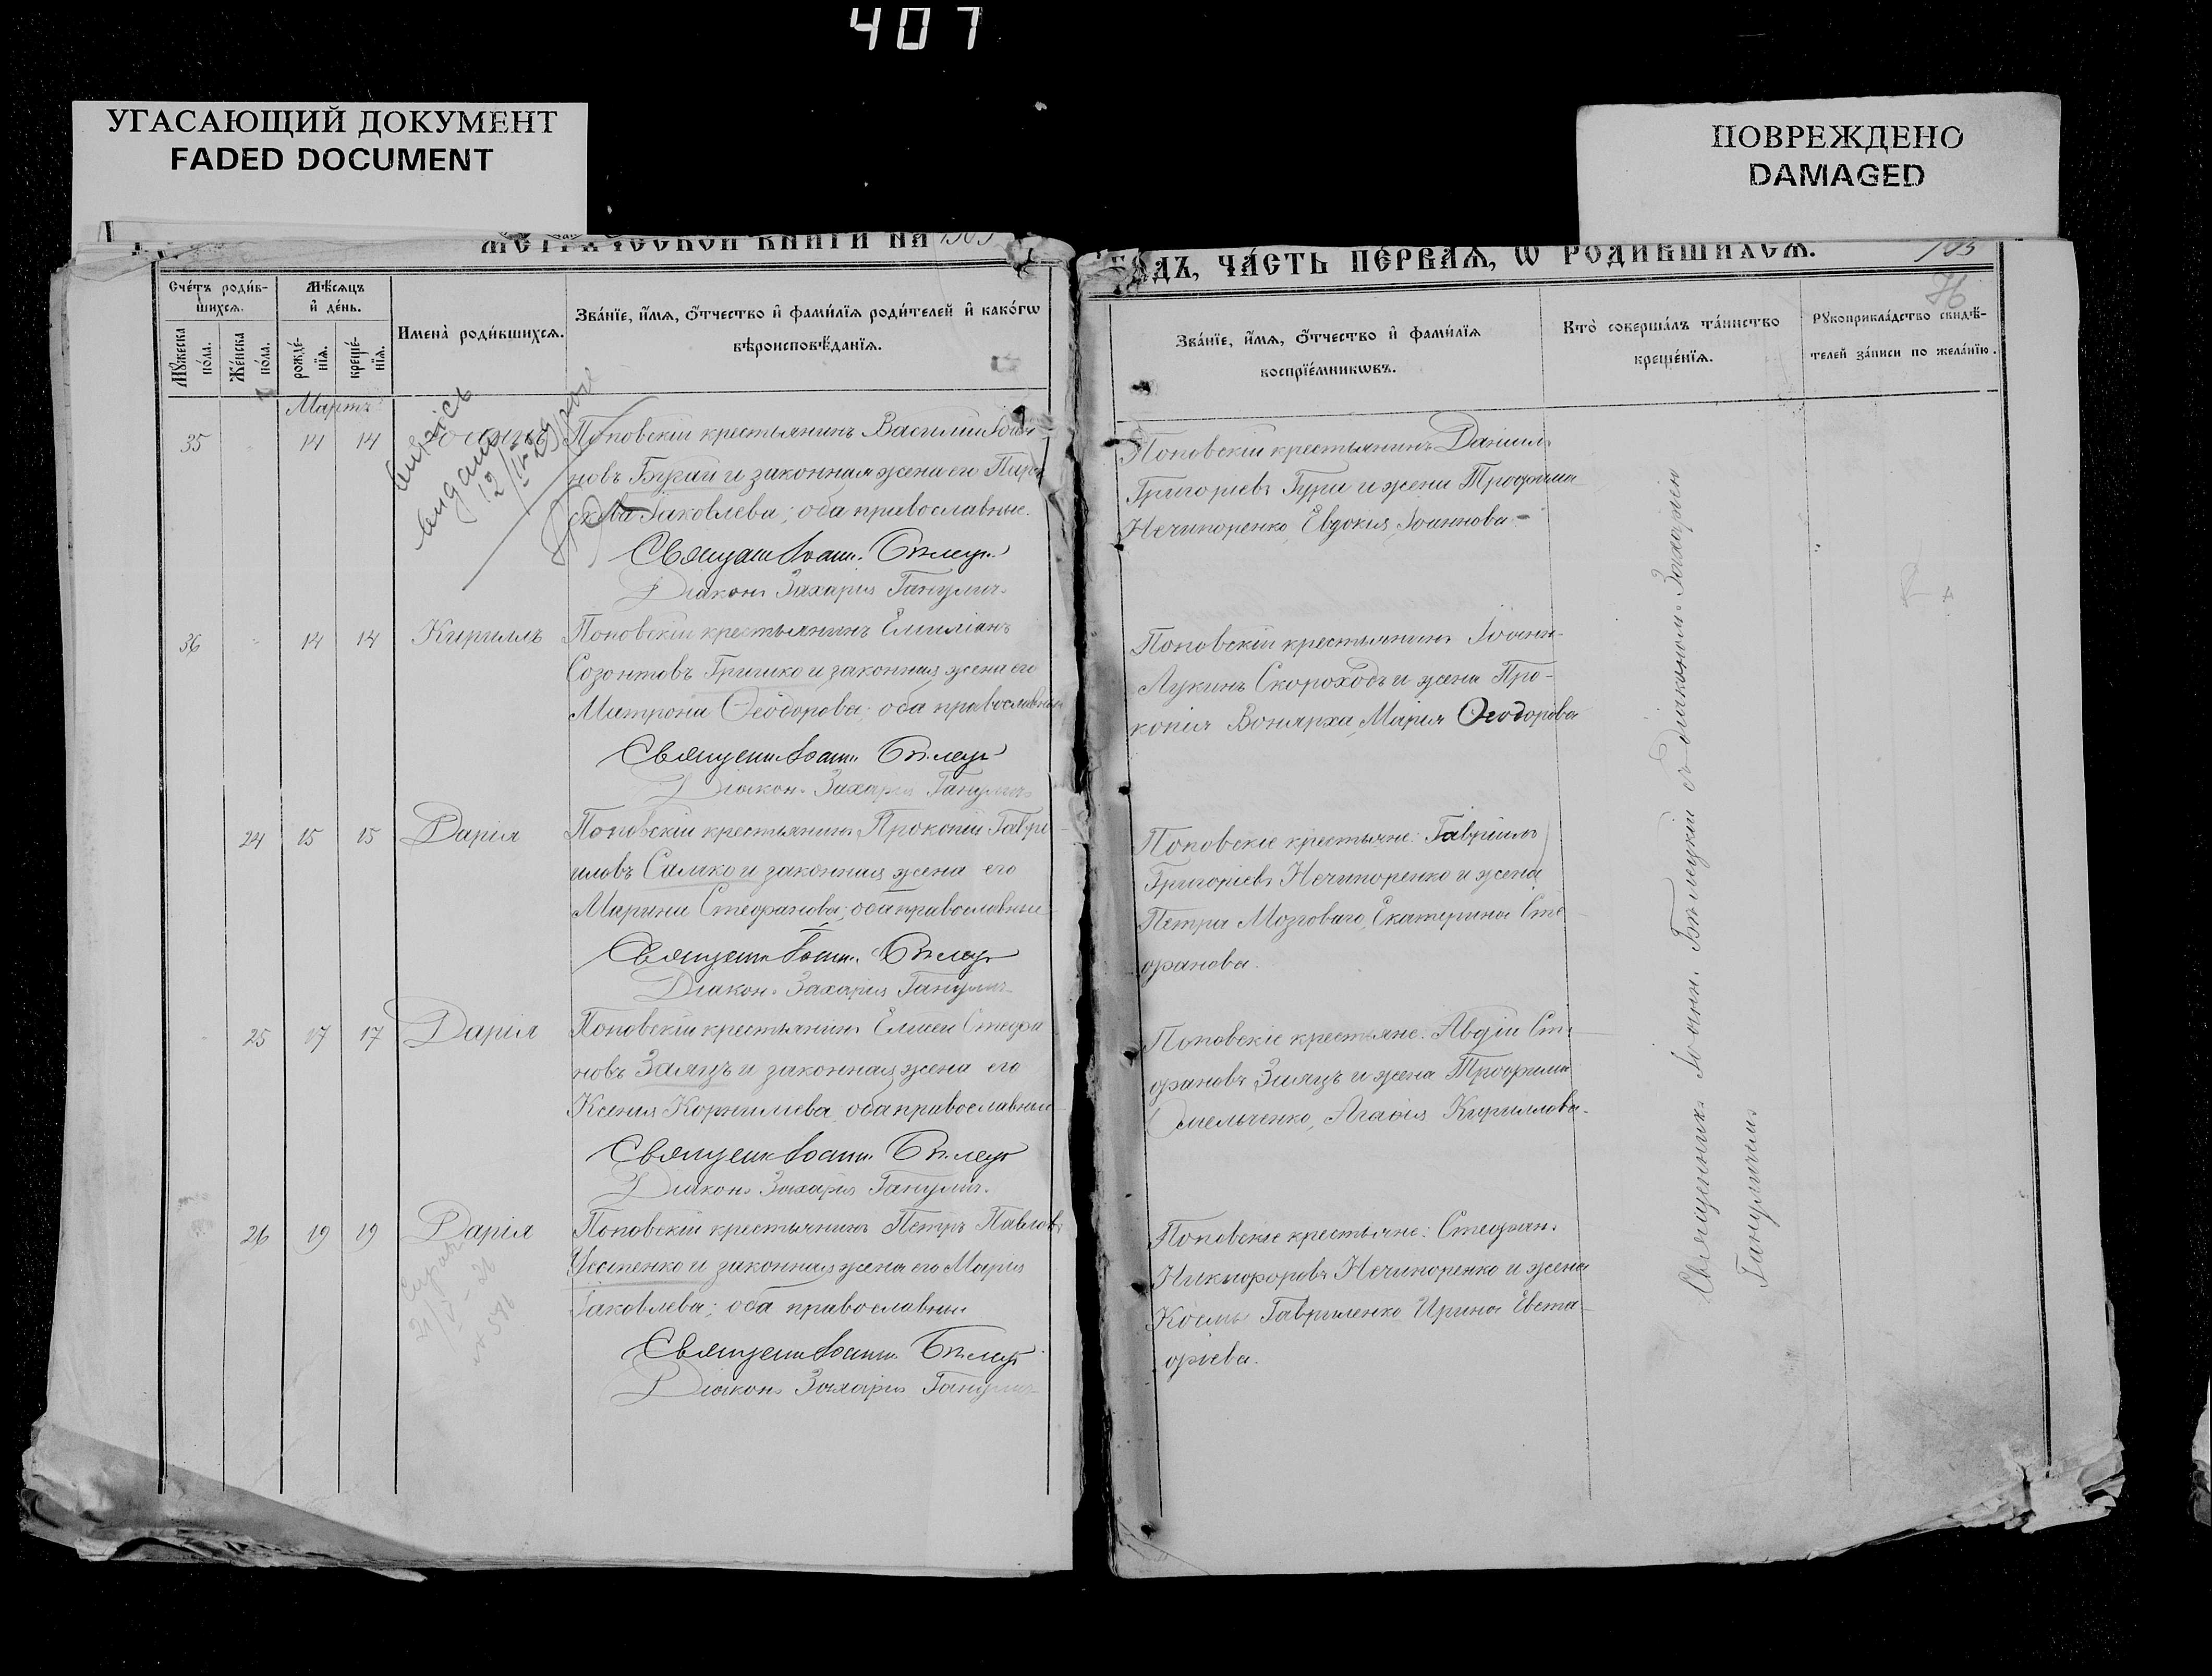 407
УГАСАЮЩИЙ ДОКУМЕНТ
FADED DOCUMENT
ПОВРЕЖДЕНО
DAMAGED
МЕТРИЧЕСКОЙ КНИГИ НА
ГОДЪ, ЧА́СТЬ ПЕ́РВАѦ, Ѡ РОДИ́ВШИХСѦ.
76
Сче́тъ роди́в-
шихсѧ.
Мѣ́сѧцъ
и҆ де́нь.
Имена̀ роди́вшихсѧ.
Зва́нїе, и҆́мѧ, ѻ҆́тчество и҆ фами́лїѧ роди́телей и҆ како́гѡ
вѣроисповѣ́данїѧ.
Мꙋ́жеска
по́ла.
Же́нска
по́ла.
рожде́-
нїѧ.
креще́-
нїѧ.
Зва́нїе, и҆́мѧ, ѻ҆́тчество и҆ фами́лїѧ
воспрїе́мникѡвъ.
Кто̀ соверша́лъ та́инство
креще́нїѧ.
Рꙋкоприкла́дство свидѣ́-
телей за́писи по жела́нїю.
Мартъ
35 14 14
Поповскій крестьянинъ Василій Іоан-
новъ Бугай и законная жена его Пара
скева Іаковлева; оба православные.
Священ Іоан. Бѣлец
Діаконъ Захарія Ганулич
Поповскій крестьянинъ Даніилъ
Григоріевъ Гура и жена Трофима
Нечипоренко, Евдокія Іоаннова.
36 14 14 Кириллъ
Поповскій крестьянинъ Емиліанъ
Созонтовъ Гришко и законная жена его
Матрона Ѳеодорова; оба православны
Священ Іоан. Бѣлец
Діаконъ Захарія Ганулич
Поповскій крестьянинъ Іоанн
Лукинъ Скороходъ и жена Про-
копія Вонярха, Марія Ѳеодорова
24 15 15 Дарія
Поповскій крестьянинъ Прокопій Гаврі
иловъ Салко и законная жена его
Марина Стефанова; оба православные
Священ Іоан. Бѣлец
Діаконъ Захарія Ганулич
Поповскіе крестьяне: Гавріилъ
Григоріевъ Нечипоренко и жена
Петра Мозговаго, Екатерина Сте
фанова.
25 17 17 Дарія
Поповскій крестьянинъ Елисей Стефа
новъ Заяцъ и законная жена его
Ксенія Корнилиева; оба православные
Священ Іоан. Бѣлец
Діаконъ Захарія Ганулич.
Поповскіе крестьяне: Авдій Сте
фановъ Заяцъ и жена Трофима
Омельченко, Агаѳія Кириллова.
26 19 19 Дарія
Поповскій крестьянинъ Петръ Павловъ
Устенко и законная жена его Марія
Іаковлева; оба православные
Священ Іоан. Бѣлец
Діаконъ Захарія Ганулич
Поповскіе крестьяне: Стефанъ
Никифоровъ Нечипоренко и жена
Космы Гавриленко, Ирина Евста
фіева.
Священникъ Іоаннъ Бѣлецкій съ діакономъ Захаріею
Гануличемъ